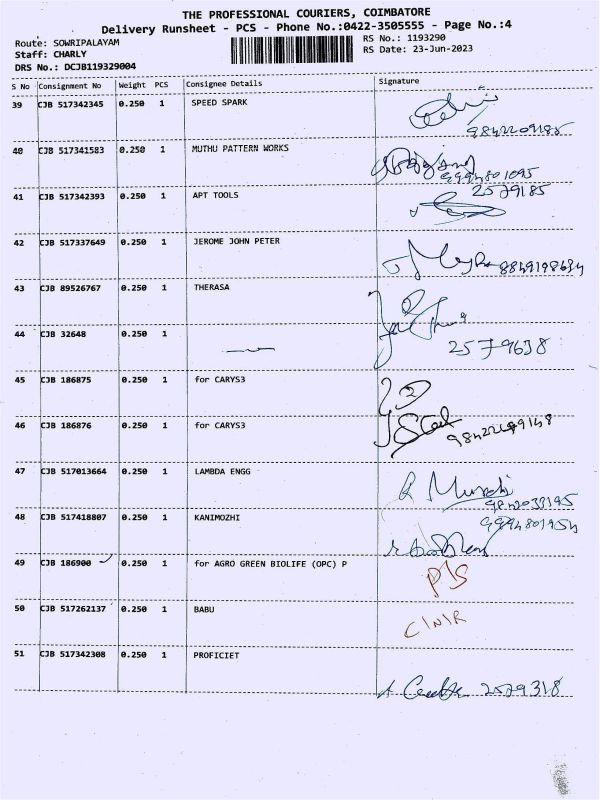 THE PROFESSIONAL COURIERS, COIMBATORE
Delivery Runsheet - PCS - Phone No.:0422-3505555 - Page No.:4
Route: SOWRIPALAYAM RS No.: 1193290
Staff: CHARLY RS Date: 23-Jun-2023
DRS No.: DCJB119329004
S No Consignment No Weight PCS Consignee Details Signature
39 CJB 517342345 0.250 1 SPEED SPARK
9842209185
40 CJB 517341583 0.250 1 MUTHU PATTERN WORKS
9994801095
41 CJB 517342393 0.250 1 APT TOOLS 2579185
42 CJB 517337649 0.250 1 JEROME JOHN PETER
43 CJB 89526767 0.250 1 THERASA
44 CJB 32648 0.250 1
2579638
45 CJB 186875 0.250 1 for CARYS3
46 CJB 186876 0.250 1 for CARYS3
47 CJB 517013664 0.250 1 LAMBDA ENGG
48 CJB 517418807 0.250 1 KANIMOZHI
49 CJB 186900 0.250 1 for AGRO GREEN BIOLIFE (OPC) P
50 CJB 517262137 0.250 1 BABU
51 CJB 517342308 0.250 1 PROFICIET
2579318